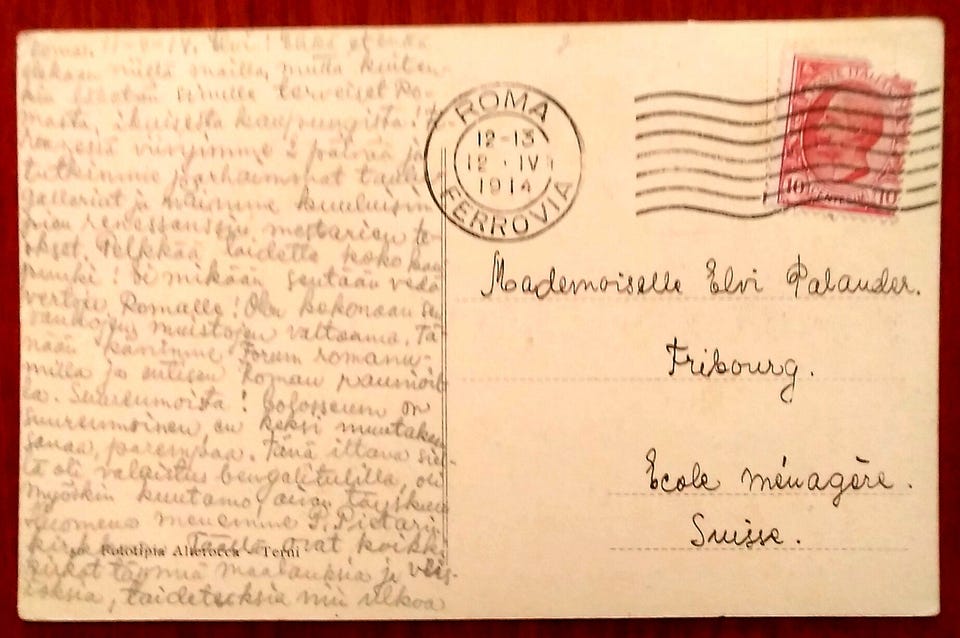 Roma. Elvi!
näillä mailla, mutta kuiten-
kin lähetän sinulle terveiset Ro-
masta, ikuisesta kaupungista!
viivyimme 2 päivää ja
tutkimme parhaimmat taulu-
galleriat ja näimme kuuluisim-
pien renessanssin mestarien te-
okset. Pelkkää taidetta koko kau-
punki! Ei mikään sentään vedä
vertoja Romalle! Olen kokonaan se
muistojen vallassa. Tä-
nään kävimme Forum romanu-
milla ja entisen Roman raunioil-
la. Suuremoista! Colosseum on
suuremoinen, en keksi muutakaan
sanaa, parempaa. Tänä iltana siel-
lä oli valaistus bengalitulilla, oli
myöskin kuutamo, aivan täysikuu
Huomenna menemme S. Pietarin
kirkkoon. Täällä ovat kaikki
kirkot täynnä maalauksia ja veis-
toksia, taideteoksia niin ulkoa
Fototipia Alterocca - Terni
ROMA
12-13
12 · IV
1914
FERROVIA
10 10
Mademoiselle Elvi Palander.
Fribourg.
Ecole ménagère.
Suisse.